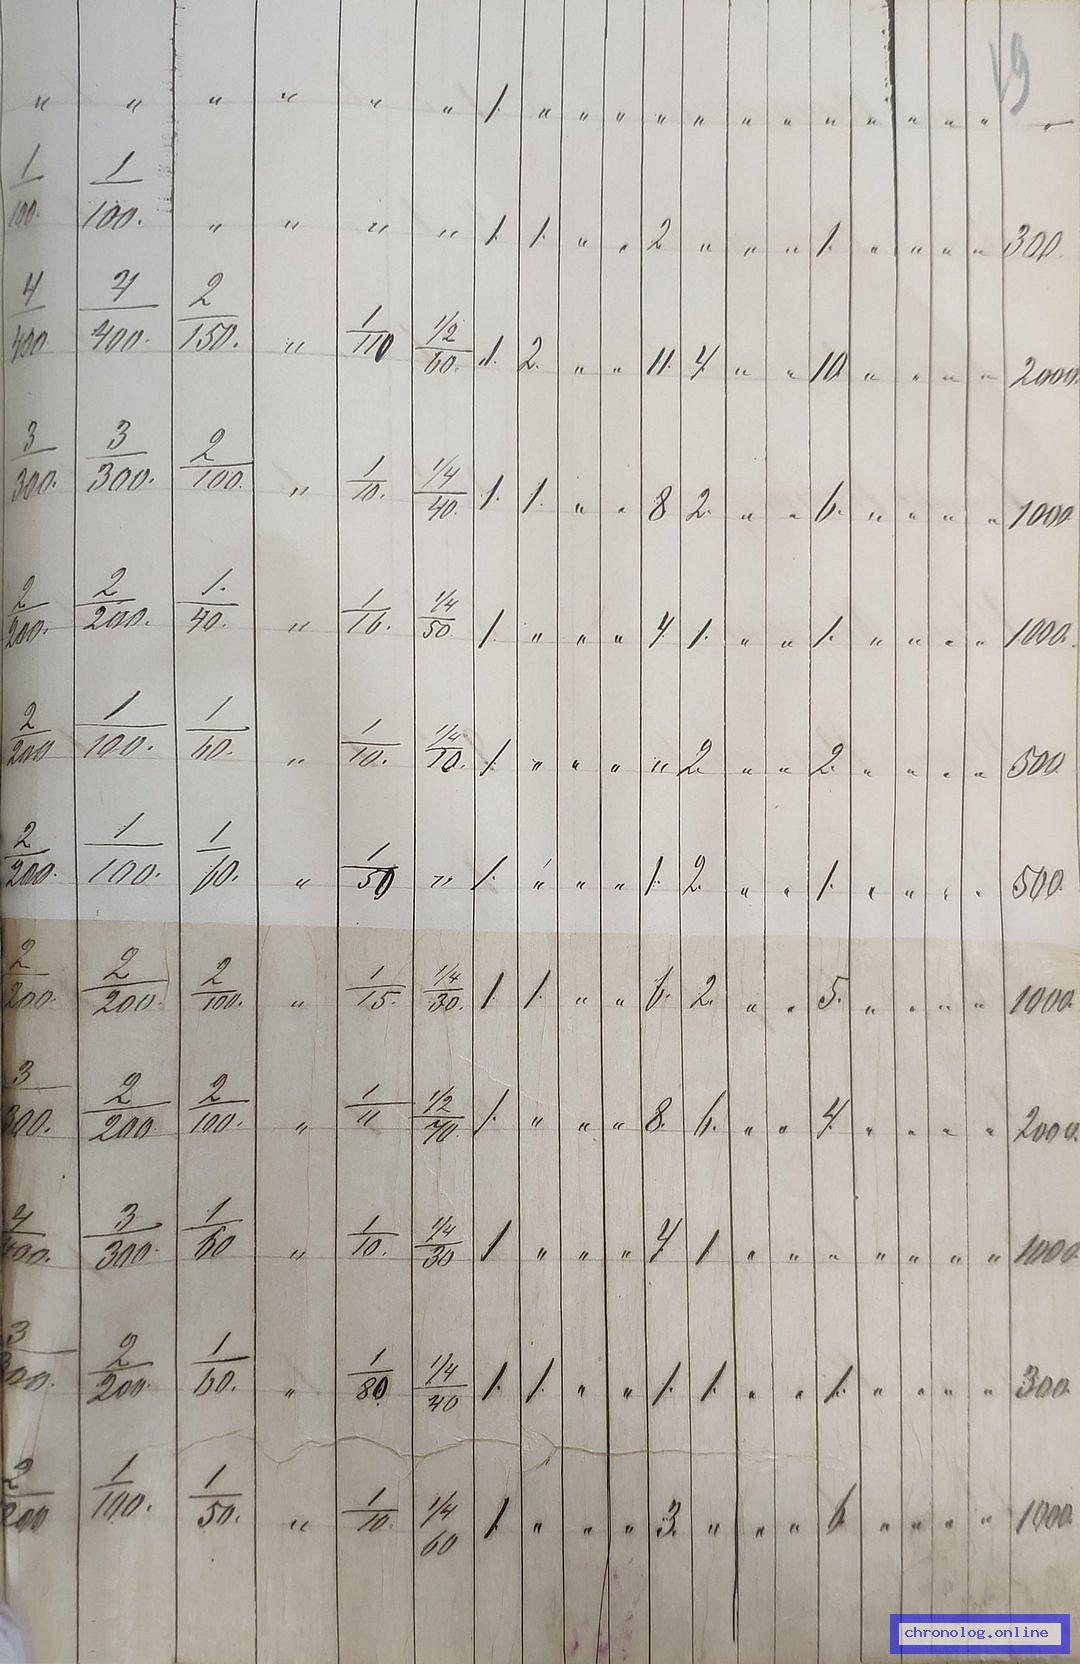 19
" " " " " " 1. " " " " " " " " " " " " " "
1/100. 1/100. " " " " 1. 1. " " 2 " " " 1. " " " " 300.
4/400 4/400. 2/150. " 1/110 1/2/60. 1. 2. " " 11. 4 " " 10. " " " " 2000.
3/300. 3/300. 2/100. " 1/10. 1/4/40. 1. 1. " " 8 2. " " 6. " " " " 1000.
2/200. 2/200. 1./40. " 1/16. 1/4/50 1. " " " 4 1. " " 1. " " " " 1000.
2/200 1/100. 1/60. " 1/10. 1/4/10. 1. " " " " 2. " " 2. " " " " 500.
2/200. 1/100. 1/60. " 1/50 " 1. " " " 1. 2. " " 1. " " " " 500.
2/200. 2/200. 2/100. " 1/15. 1/4/30. 1. 1. " " 6. 2. " " 5. " " " " 1000.
3/300. 2/200. 2/100. " 1/11 1/2/70. 1. " " " 8. 6. " " 4. " " " " 2000.
4/400. 3/300. 1/60 " 1/10. 1/4/30 1 " " " 4 1. " " " " " " " 1000.
3/300. 2/200. 1/60. " 1/80. 1/4/40 1. 1. " " 1. 1. " " 1. " " " " 300.
2/200 1/100. 1/50. " 1/10. 1/4/60 1. " " " 3. " " " 6. " " " " 1000.
chronolog.online